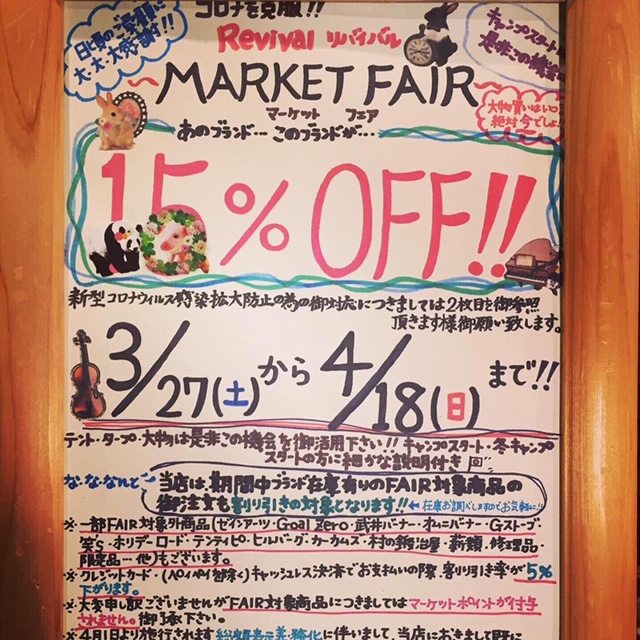 コロナを克服!!
日頃の御愛顧に
大・大・大感謝!!
Revival リバイバル
キャンプスタート
是非この機会
MARKET FAIR
マーケット フェア
大物買いはいつ?
絶対今でしょ
あのブランド…このブランドが…
15% OFF!!
新型コロナウィルス感染拡大防止の為の御対応につきましては2枚目を御参照
頂きます様御願い致します。
3/27(土)から4/18(日)まで!!
テント・タープ・大物は是非この機会を御活用下さい!! キャンプスタート・冬キャンプ
スタートの方に細かな説明付き
な・な・なんと
当店は期間中ブランド在庫有りのFAIR対象商品の
御注文も割り引きの対象となります!!
←在庫お調べしますのでお気軽に!!
※一部FAIR対象外商品(ゼインアーツ・Goal Zero・武井バーナー・オムニバーナー・Gストーブ・
笑's・ホリデーロード・テンティピ・ヒルバーグ・カーカムス・村の鍛冶屋・薪類・修理品・
限定品…他)もございます。
※クレジットカード・(PayPayを除く)キャッシュレス決済でお支払いの際、割り引き率が5%
下がります。
※大変申し訳ございませんがFAIR対象商品につきましてはマーケットポイントが付与
されません。御了承下さい。
※4月1日より施行されます総額表示義務化に伴いまして、当店におきまして既に